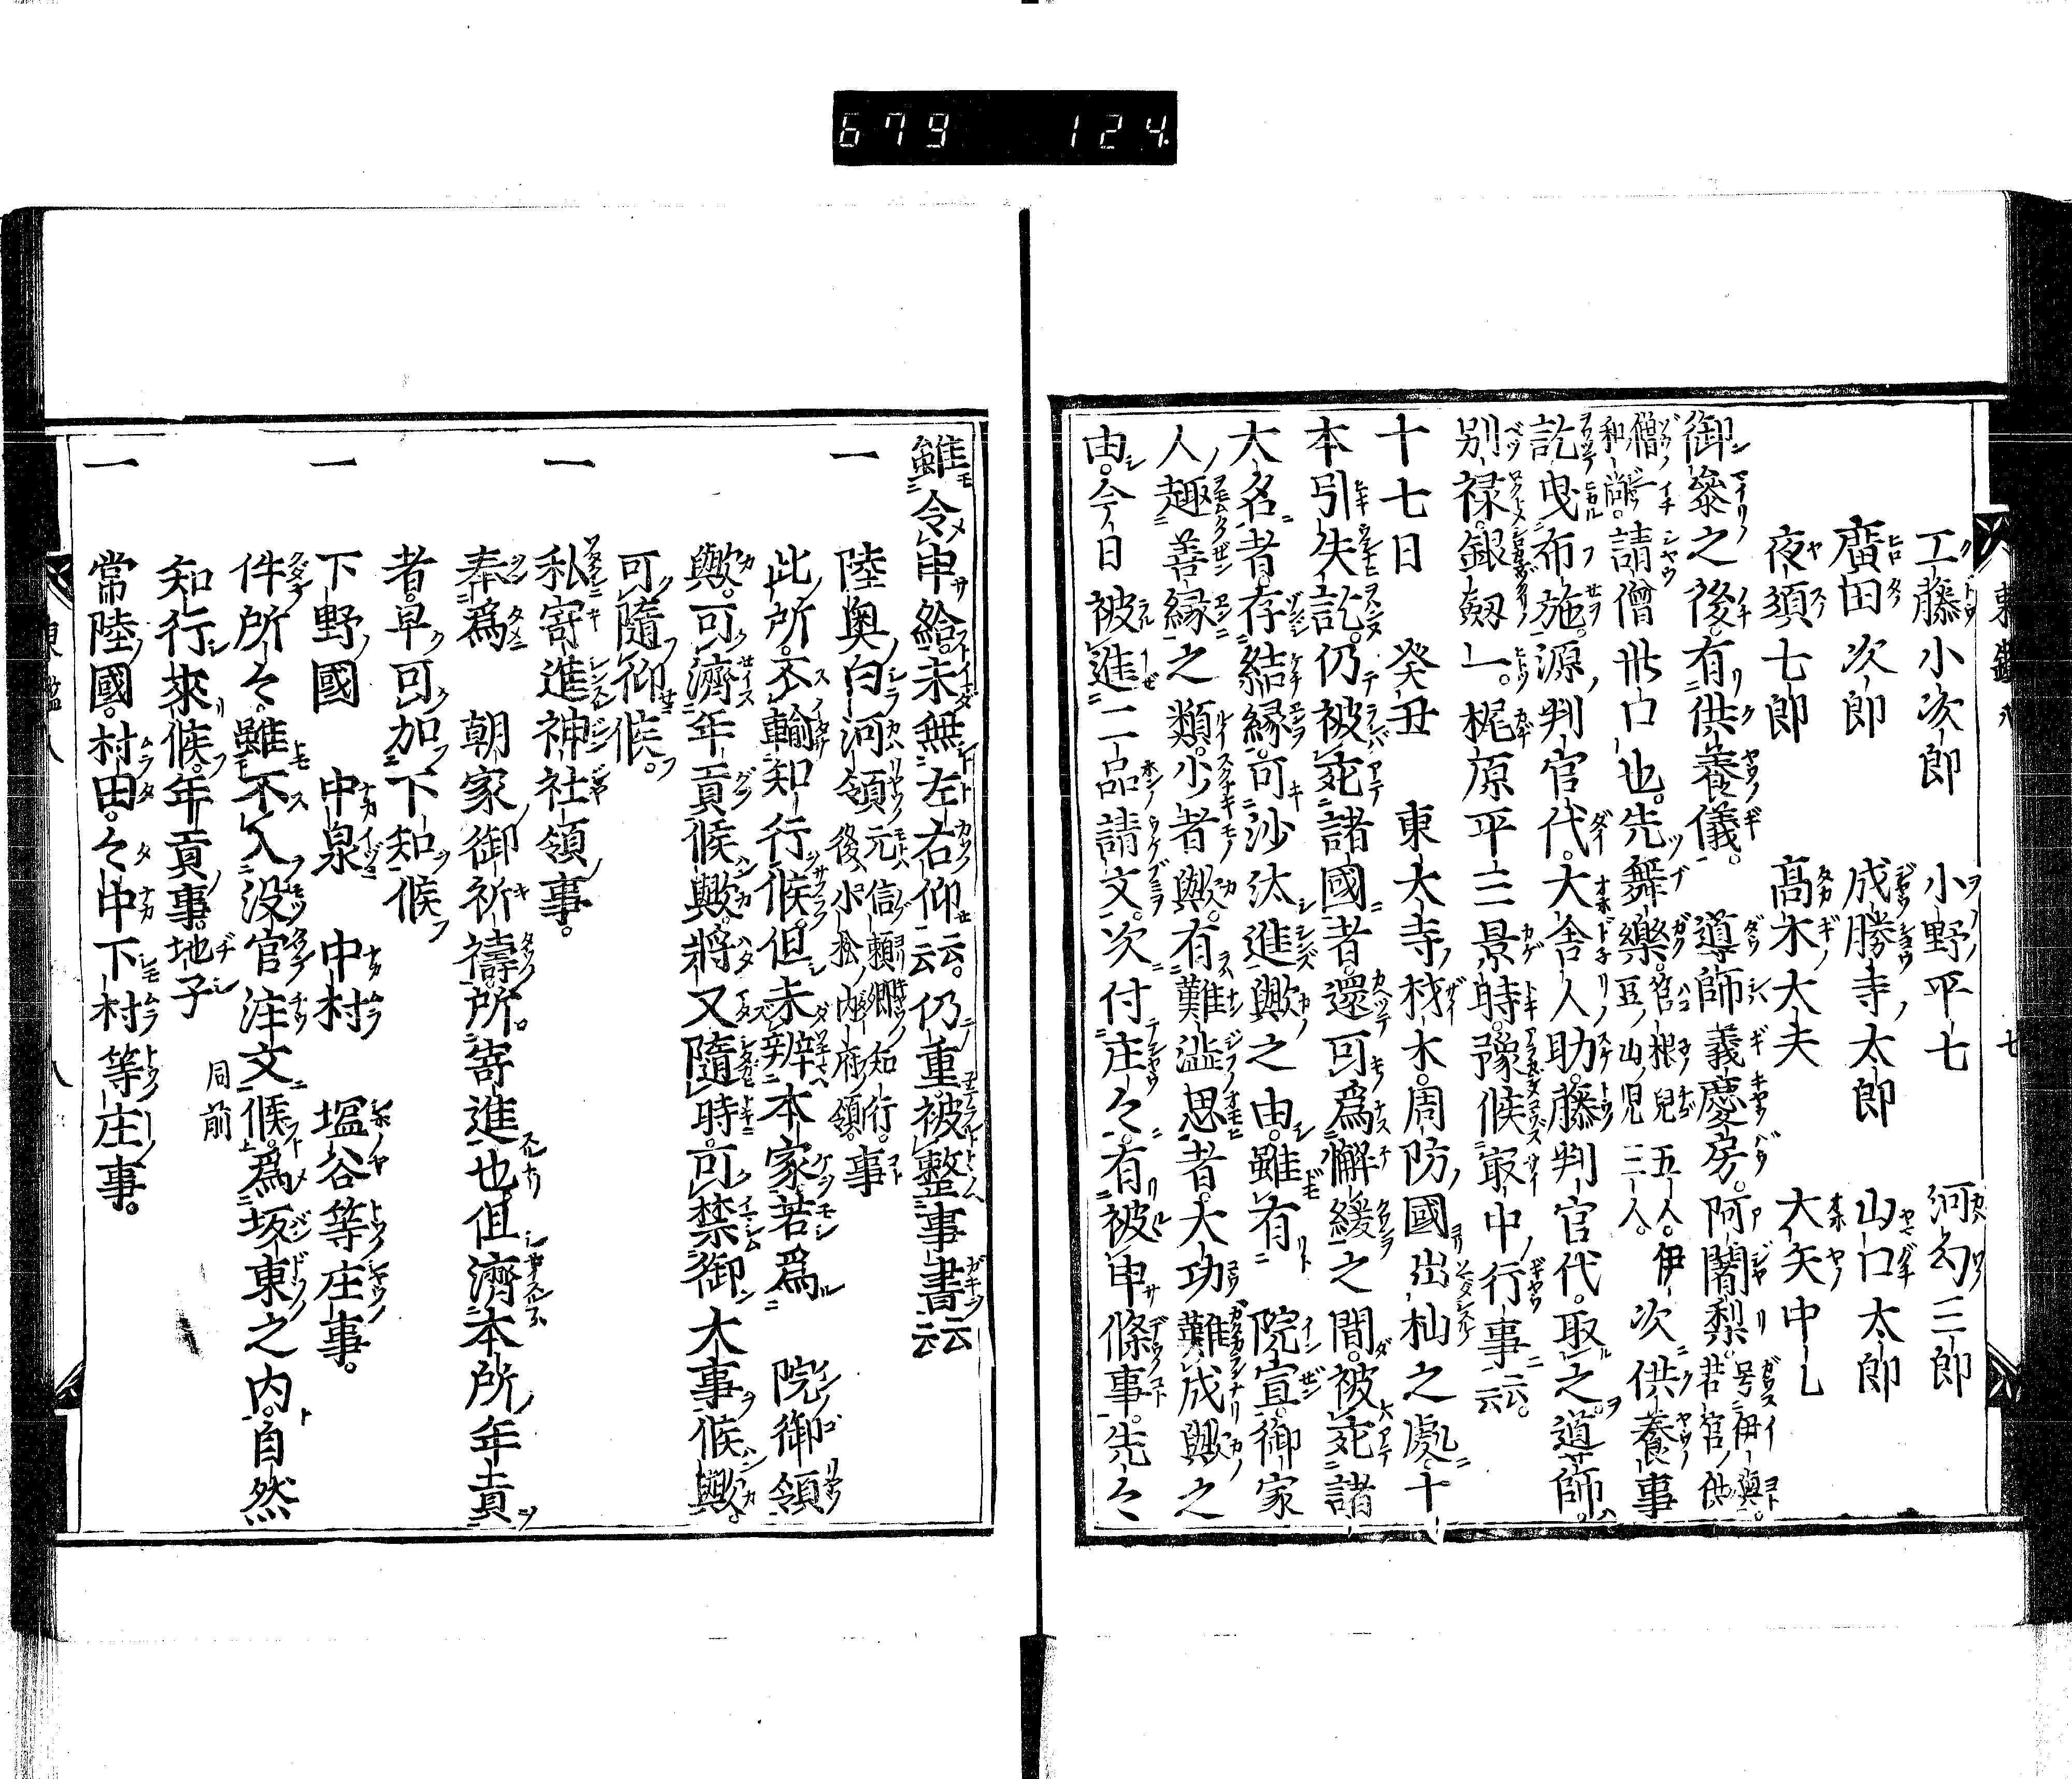 679 124
工藤小次郎 小野平七 河匂三郎
廣田次郎 成勝寺太郎 山口太郎
夜須七郎 髙木大夫 大矢中七
御參之後。有供養儀。導師義慶房。阿闍梨。号伊與。若宮供
僧一和尚。請僧丗口也。先舞樂。筥根兒五人。伊豆山兒三人。次供養事
訖曳布施。源判官代。大舎人助。藤判官代。取之。導師。
別禄。銀劔一。梶原平三景時。豫候最中行事云云。
十七日 癸丑 東大寺材木。周防國出杣之處。十
本引失訖。仍被宛諸國者。還可爲懈緩之間。被宛諸
大名者。存結縁。可沙汰進歟之由。雖有 院宣。御家
人趣善縁之類。少者歟。有難澁思者。大功難成歟之
由。今日被進二品請文。次付庄々。有被申條事。先々
雖令申給。未無左右仰云云。仍重被整事書云云
一 陸奥白河領元信頼卿知行。後小松内府領。事
此所。不輸知行候。但未辨本家。若爲 院御領
歟。可濟年貢候歟。將又隨時。可禁御大事候歟。
可隨仰候。
一 私寄進神社領事。
奉爲 朝家御祈禱。所寄進也。但濟本所年貢
者。早可加下知候
一 下野國 中泉 中村 塩谷等庄事。
件所々。雖不入没官注文候。爲坂東之内。自然
知行來候。年貢事。地子 同前
一 常陸國。村田。々中下村等庄事。